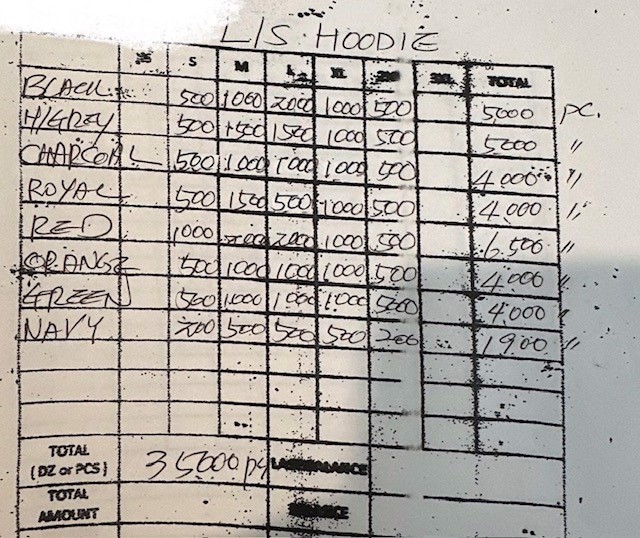 L/S HOODIE
XS S M L XL 2Xl 3XL TOTAL
BLACK 500 1000 2000 1000 500 5000 PC.
H/GREY 500 1500 1500 1000 500 5000 "
CHARCOAL 500 1.000 1000 1000 500 4.000 "
ROYAL 500 1500 500 1000 500 4.000 "
RED 1000 2000 2000 1000 500 6.500 "
ORANGE 500 1000 1000 1000 500 4.000 "
GREEN 500 1.000 1000 1.000 500 4.000 "
NAVY 200 500 500 500 200 1900 "
TOTAL
(DZ or PCS) 35000 pc LAST BALANCE
TOTAL
AMOUNT BALANCE